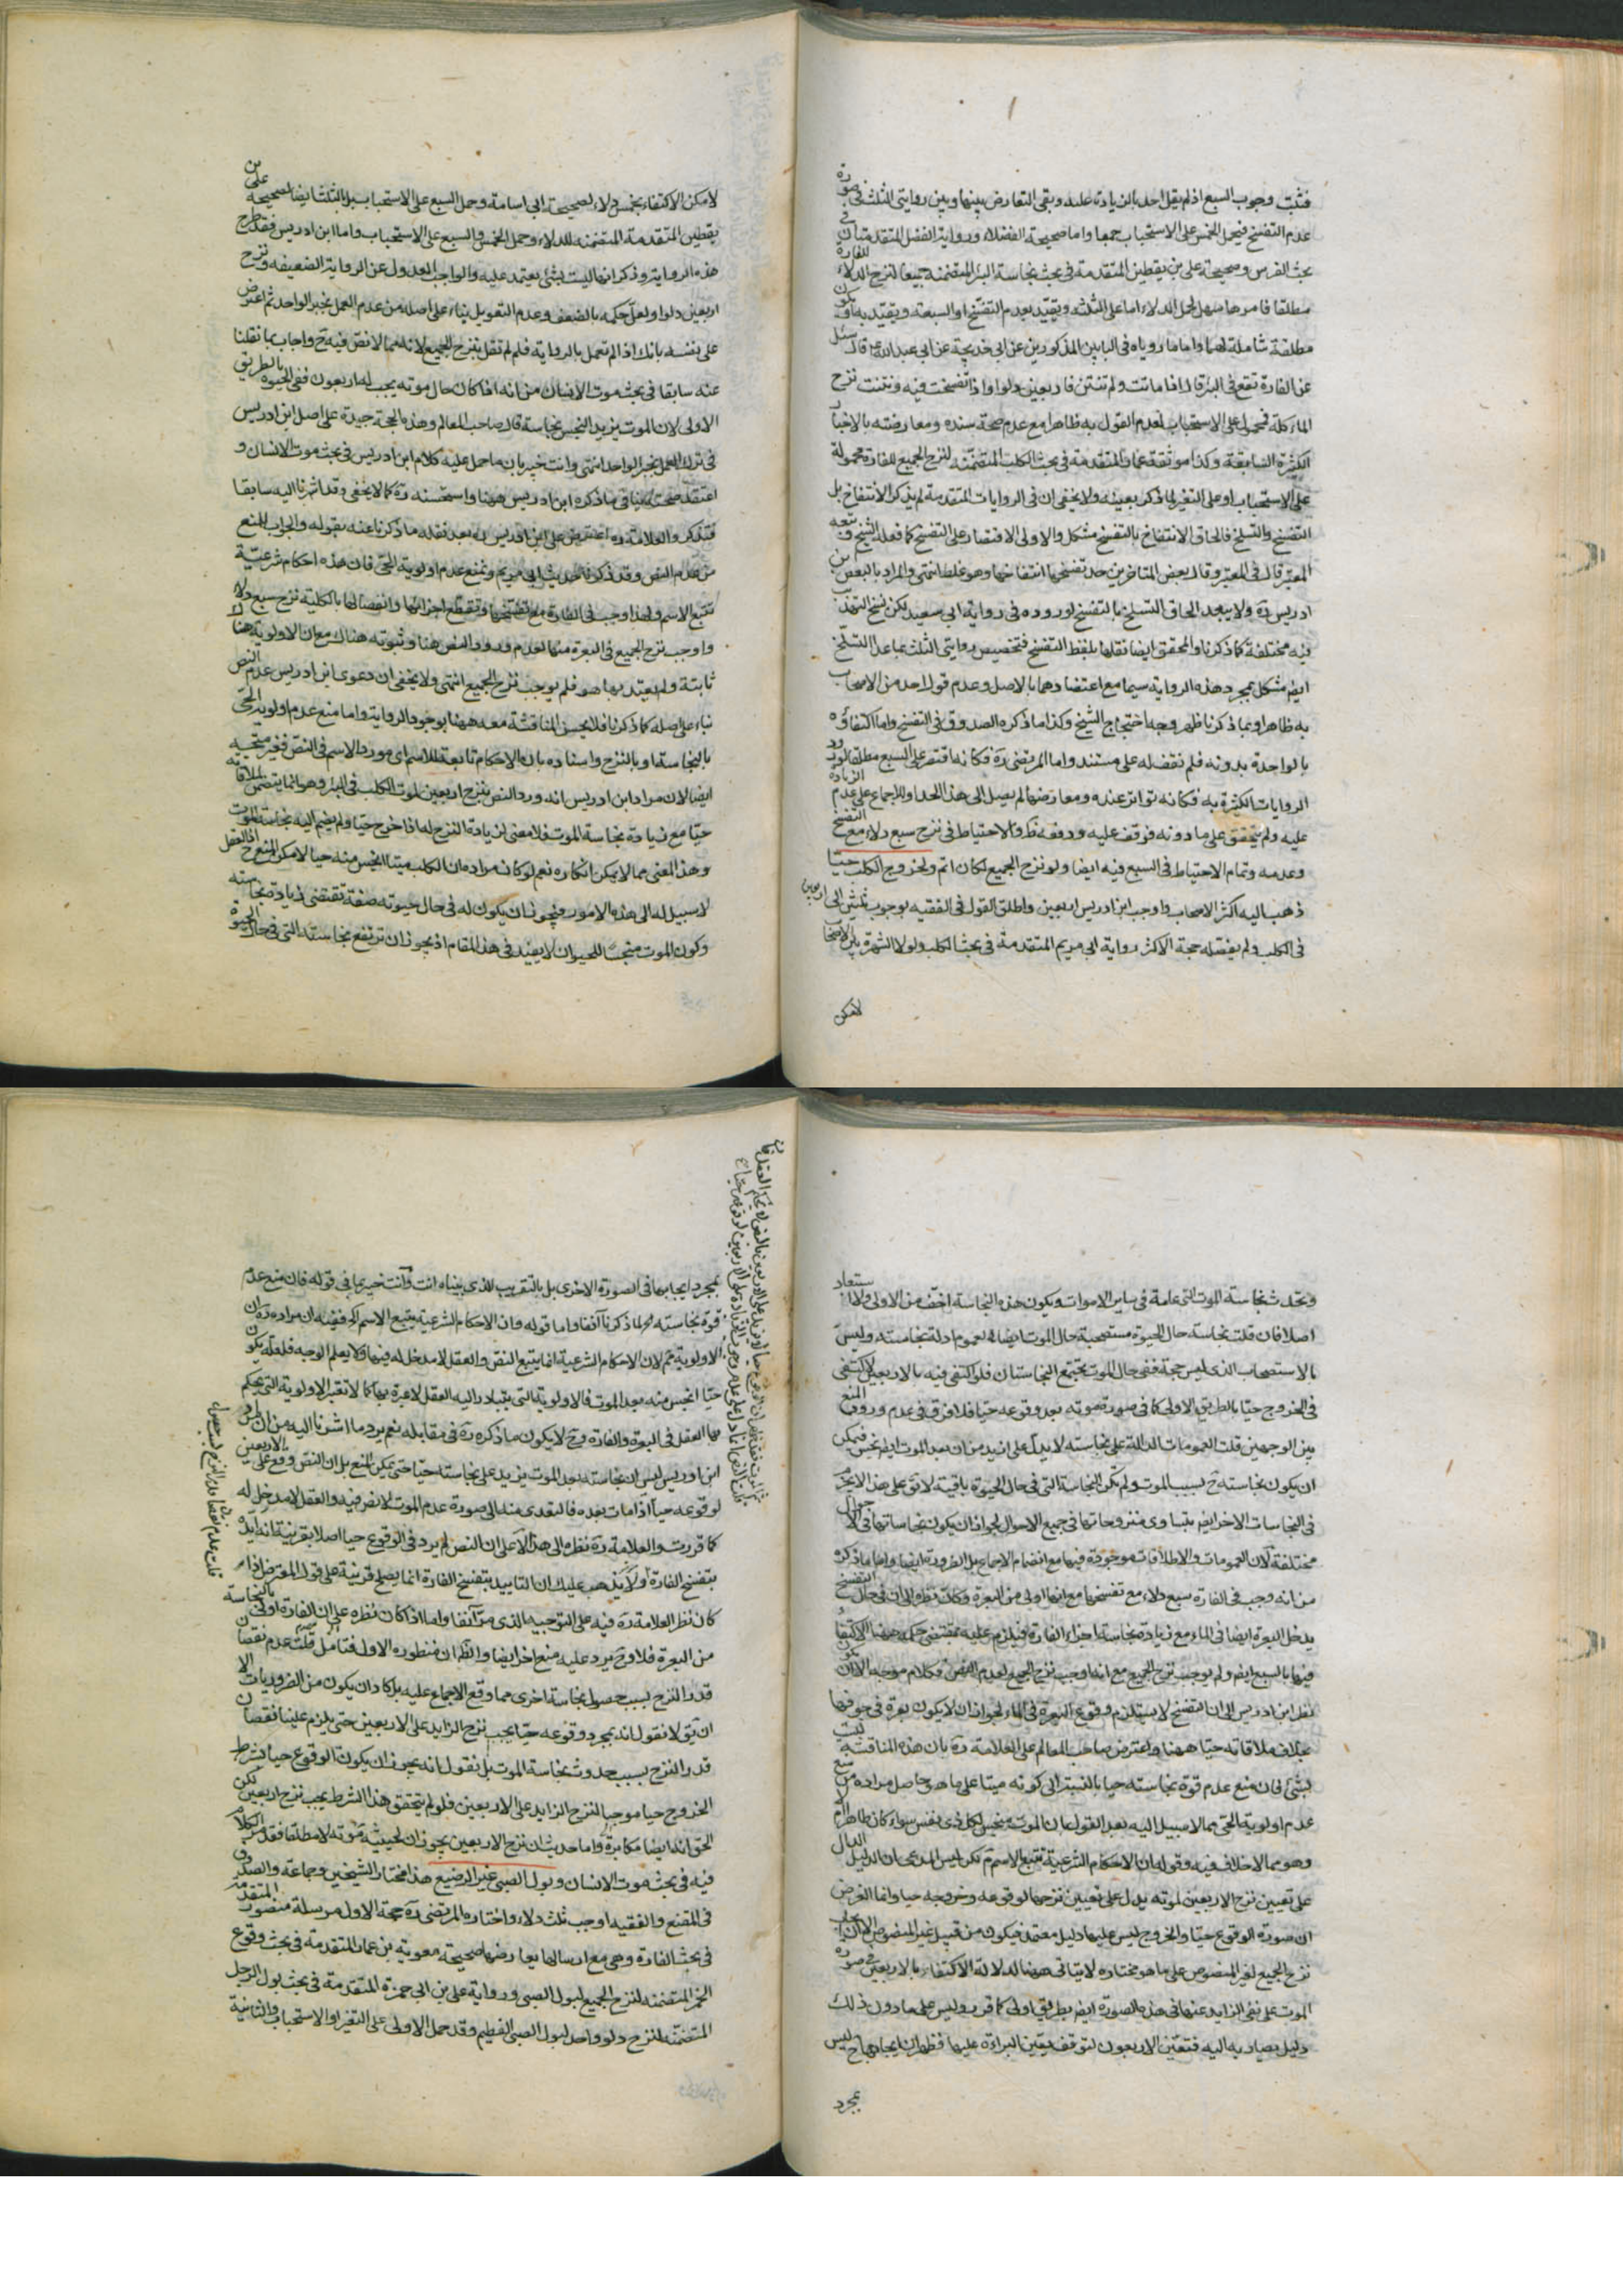 فثبت وجوب السبع اذ لم يقل احد بالزيادة عليه وبقى التعارض بينها وبين روايتى الثلث فى صورة
عدم التفسخ فيحمل الخمس على الاستحباب جمعا واما صحيحة الفضلاء ورواية الفضل المتقدمتان فى
بحث الفرس وصحيحة على بن يقطين المتقدمة فى بحث نجاسة البئر المتضمنة جميعا لنزح الدلاء للفارة
مطلقا فامرها سهل لحمل الدلاء اما على الثلث ويقيد بعدم التفسخ او السبعة ويقيد به او يكون
مطلقة شاملة لهما واما ما روياه فى البابين المذكورين عن ابى خديجة عن ابى عبد الله ع قال سئل
عن الفارة تقع فى البئر قال اذا ماتت ولم تنتن فاربعين دلوا واذا تفسخت فيه ونتنت نزح
الماء كله فمحمول على الاستحباب لعدم القول به ظاهرا مع عدم صحة سنده ومعارضته بالاخبار
الكثيرة السابقة وكذا موثقة عمار المتقدمة فى بحث الكلب المتضمنة لنزح الجميع للفارة محمولة
على الاستحباب او على التغير لما ذكر بعينه ولا يخفى ان فى الروايات المتقدمة لم يذكر الانتفاخ بل
التفسخ والتسلخ فالحاق الانتفاخ بالتفسخ مشكل والاولى الاقتصار على التفسخ كما فعله الشيخ وتبعه
المعتبر قال فى المعتبر وقال بعض المتاخرين حد تفسخها انتفاخها وهو غلط انتهى والمراد بالبعض ابن
ادريس ره ولا يبعد الحاق التسلخ بالتفسخ لوروده فى رواية ابى سعيد لكن نسخ التهذيب
فيه مختلفة كما ذكرنا والمحقق ايضا نقلها بلفظ التفسخ فتخصيص روايتى الثلث بما عدا التسلخ
ايضا مشكل بمجرد هذه الرواية سيما مع اعتضادهما بالاصل وعدم قول احد من الاصحاب
به ظاهرا وبما ذكرنا ظهر وجه احتجاج الشيخ وكذا ما ذكره الصدوق فى التفسخ واما اكتفاؤه
بالواحدة بدونه فلم نقف له على مستند واما المرتضى ره فكانه اقتصر على السبع مطلقا لورود
الروايات الكثيرة به فكانه تواتر عنده ومعارضها لم يصل الى هذا الحد وللاجماع على عدم الزيادة
عليه ولم يتحقق على ما دونه فوقف عليه ودفعه ظ والاحتياط فى نزح سبع دلاء مع التفسخ
وعدمه وتمام الاحتياط فى السبع فيه ايضا ولو نزح الجميع لكان اتم ولخروج الكلب حيا
ذهب اليه اكثر الاصحاب واوجب ابن ادريس اربعين واطلق القول فى الفقيه بوجوب ثلثين الى اربعين
فى الكلب ولم يفصله حجة الاكثر رواية ابى مريم المتقدمة فى بحث الكلب ولولا الشهرة بين الاصحاب
لامكن
لامكن الاكتفاء بخمس دلاء لصحيحة ابى اسامة وحمل السبع على الاستحباب بل بالثلث ايضا لصحيحة على بن
يقطين المتقدمة المتضمنة للدلاء وحمل الخمس والسبع على الاستحباب واما ابن ادريس فقد طرح
هذه الرواية وذكر انها ليست بشئ يعتمد عليه والواجب العدول عن الرواية الضعيفة ونزح
اربعين دلوا ولعل حكمه بالضعف وعدم التعويل بناء على اصله من عدم العمل بخبر الواحد ثم اعترض
على نفسه بانك اذا لم تعمل بالرواية فلم لم تقل بنزح الجميع لانه مما لا نص فيه ح واجاب بما نقلنا
عنه سابقا فى بحث موت الانسان من انه اذا كان حال موته يجب له اربعون ففى الحيوة بالطريق
الاولى لان الموت يزيد النجس نجاسة قال صاحب المعالم وهذه الحجة جيدة على اصل ابن ادريس
فى ترك العمل بخبر الواحد انتهى وانت خبير بان ما حمل عليه كلام ابن ادريس فى بحث موت الانسان و
اعتقد صحته ينافى ما ذكره ابن ادريس ههنا واستحسنه ره كما لا يخفى وقد اشرنا اليه سابقا
فتذكر والعلامة ره اعترض على ابن ادريس ره بعد نقله ما ذكرنا عنه بقوله والجواب المنع
من عدم النص وقد ذكرنا حديث ابى مريم ونمنع عدم اولوية الحى فان هذه احكام شرعية
تتبع الاسم ولهذا وجب فى الفارة مع تفسخها وتقطع اجزائها وانفصالها بالكلية نزح سبع دلاء
واوجب نزح الجميع فى البعرة منها لعدم ورود النص هنا وثبوته هناك مع ان الاولوية هنا
ثابتة ولم يعتد بها هو فلم يوجب نزح الجميع انتهى ولا يخفى ان دعوى ابن ادريس عدم النص
بناء على اصله كما ذكرنا فلا يحسن المناقشة معه ههنا بوجود الرواية واما منع عدم اولوية الحى
بالنجاسة او بالنزح واسناده بان الاحكام تابعة للاسم اى مورد الاسم فى النص فغير متجه
ايضا لان مراد ابن ادريس انه ورد النص بنزح اربعين لموت الكلب فى البئر وهو انما يتضمن ملاقاته
حيا مع زيادة نجاسة الموت فلا معنى لزيادة النزح له اذا خرج حيا ولم يضم اليه نجاسة الموت
وهذا المعنى مما لا يمكن انكاره نعم لو كان مراده ان الكلب ميتا انجس منه حيا لامكن المنع ح اذ العقل
لا سبيل له الى هذه الامور فيجوز ان يكون له فى حال حيوته صفة تقتضى زيادة نجاسته
وكون الموت منجسا للحيوان لا يفيد فى هذا المقام اذ يجوز ان ترتفع نجاسته التى فى حال الحيوة
ويحدث نجاسة الموت التى عامة فى ساير الاموات ويكون هذه النجاسة اخف من الاولى ولا استبعاد
اصلا فان قلت نجاسة حال الحيوة مستصحبة حال الموت ايضا لعموم ادلة نجاسته وليس
بالاستصحاب الذى ليس حجة ففى حال الموت يجتمع النجاستان فلو اكتفى فيه بالاربعين لاكتفى
فى الخروج حيا بالطريق الاولى كما فى صورة موته بعد وقوعه حيا فلا فرق فى عدم ورود المنع
بين الوجهين قلت العمومات الدالة على نجاسته لا يدل على ازيد من ان بعد الموت ايضا نجس فيمكن
ان يكون نجاسته ح بسبب الموت ولم تكن النجاسة التى فى حال الحيوة باقية لا يق على هذا لا يجزم
فى النجاسات الاخر ايضا بتساوى منزوحاتها فى جميع الاحوال لجواز ان يكون نجاساتها فى الاحوال
مختلفة لان العمومات والاطلاقات موجودة فيها مع انضمام الاجماع بل الضرورة ايضا واما ما ذكره
من انه وجب فى الفارة سبع دلاء مع تفسخها مع انها اولى من البعرة وكان نظره الى ان فى حال التفسخ
يدخل البعرة ايضا فى الماء مع زيادة نجاسة اجزاء الفارة فيلزم عليه بمقتضى حكمه ههنا الاكتفاء
فيها بالسبع ايضا ولم يوجب نزح الجميع مع انه اوجب نزح الجميع لعدم النص فكلام موجه الا ان يكون
نظر ابن ادريس الى ان التفسخ لا يستلزم وقوع البعرة فى الماء لجواز ان لا يكون بعرة فى جوفها
بخلاف ملاقاته حيا ههنا واعترض صاحب المعالم على العلامة ره بان هذه المناقشة ليست
بشئ لان منع عدم قوة نجاسته حيا بالنسبة الى كونه ميتا على ما هو حاصل مراده من منع
عدم اولوية الحى مما لا سبيل اليه بعد القول بان الموت منجس لكل ذى نفس سواء كان طاهرا ام لا
وهو مما لا خلاف فيه وقوله ان الاحكام الشرعية تتبع الاسم مسلم لكن ليس المدعى ان الدليل الدال
على تعيين نزح الاربعين لموته يدل على تعيين نزحها لوقوعه وخروجه حيا وانما الغرض
ان صورة الوقوع حيا والخروج ليس عليها دليل معتمد فيكون من قبيل غير المنصوص الا ان ايجاب
نزح الجميع لغير المنصوص على ما هو مختاره لا يتاتى ههنا لدلالة الاكتفاء بالاربعين فى صورة
الموت على نفى الزايد عنها فى هذه الصورة ايضا بطريق اولى كما قرر وليس على ما دون ذلك
دليل يصار به اليه فتعين الاربعون لتوقف يقين البراءة عليها فظهر ان ايجابها ح ليس
بمجرد
بمجرد ايجابها فى الصورة الاخرى بل بالتقريب الذى بيناه انت وانت خبير بما فى قوله فان منع عدم
قوة نجاسته لما ذكرنا آنفا واما قوله وان الاحكام الشرعية يتبع الاسم الخ ففيه ان مراده ره ان
الاولوية مم لان الاحكام الشرعية انما يتبع النص والعقل لا مدخل له فيها ولا يعلم الوجه فلعله يكون
حيا انجس منه بعد الموت فالاولوية التى يتبادر اليه العقل لا عبرة بها كما لا تعتبر الاولوية التى يحكم
بها العقل فى البعرة والفارة وح لا يكون ما ذكره ره فى مقابله نعم يرد ما اشرنا اليه من ان مراد
ابن ادريس ليس ان نجاسته بعد الموت يزيد على نجاسته حيا حتى يمكن المنع بل ان النص وقع على الاربعين
لوقوعه حيا اذا مات بعده فالتعدى منه الى صورة عدم الموت لا نص فيه والعقل لا مدخل له
كما قررت والعلامة ره نظره الى هذا لا على ان النص لم يرد فى الوقوع حيا اصلا بقرينة انه ايده
بتفسخ الفارة ولا يذهب عليك ان التاييد بتفسخ الفارة انما يصلح قرينة على قول المعترض اذا
كان نظر العلامة ره فيه على التوجيه الذى مر آنفا واما اذا كان نظره على ان الفارة اولى بالنجاسة
من البعرة فلا وح يرد عليه منع اخر ايضا والظ ان منظوره الاول فتامل قلت عدم نقصان
قدر النزح بسبب حصول نجاسة اخرى مما وقع الاجماع عليه بل كاد ان يكون من الضروريات الا
ان يق لا نقول انه بمجرد وقوعه حيا يجب نزح الزايد على الاربعين حتى يلزم علينا نقصان
قدر النزح بسبب حدوث نجاسة الموت بل نقول انه يجوز ان يكون الوقوع حيا بشرط
الخروج حيا موجبا لنزح الزايد على الاربعين فلو لم يتحقق هذا الشرط يجب نزح اربعين لكن
الحق ان هذا ايضا مكابرة واما حديث ان نزح الاربعين يجوز ان لحيثية موته لا مطلقا فقد مر الكلام
فيه فى بحث موت الانسان وبول الصبى غير الرضيع هذا مختار الشيخين وجماعة والصدوق
فى المقنع والفقيه اوجب ثلث دلاء واختاره المرتضى ره حجة الاول مرسلة منصور المتقدمة
فى بحث الفارة وهى مع ارسالها يعارضها صحيحة معوية بن عمار المتقدمة فى بحث وقوع
الخمر المتضمنة لنزح الجميع لبول الصبى ورواية على بن ابى حمزة المتقدمة فى بحث بول الرجل
المتضمنة لنزح دلو واحد لبول الصبى الفطيم وقد حمل الاولى على التغير او الاستحباب والثانية